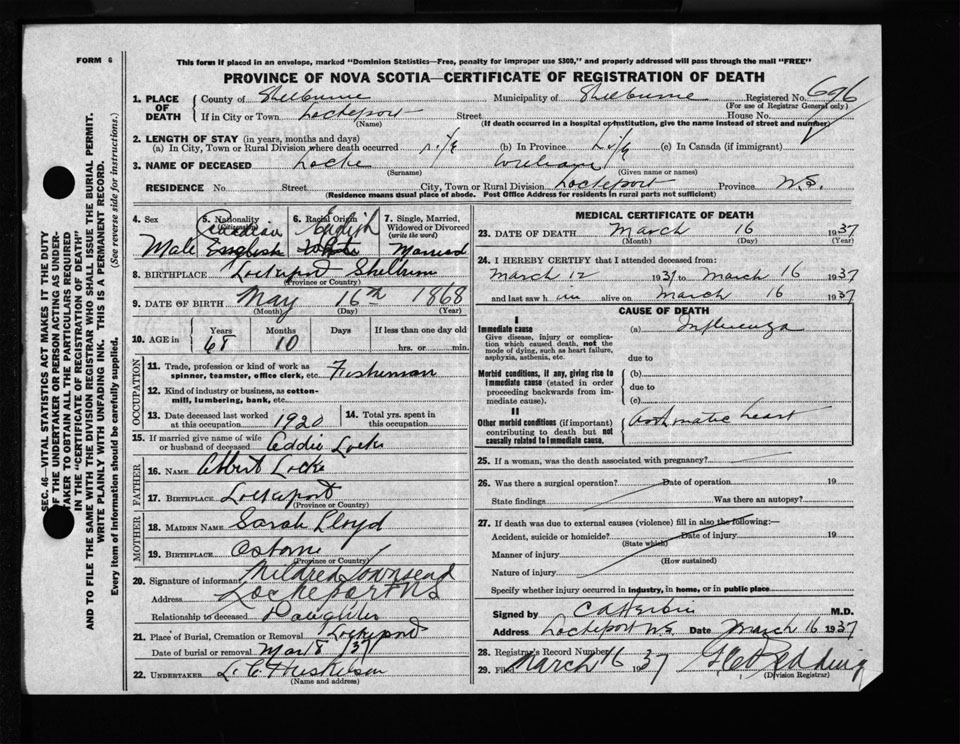 FORM 6
This form if placed in an envelope, marked "Dominion Statistics—Free, penalty for improper use $300," and properly addressed will pass through the mail "FREE"
PROVINCE OF NOVA SCOTIA—CERTIFICATE OF REGISTRATION OF DEATH
1. PLACE OF DEATH County of Shelburne Municipality of Shelburne Registered No. 696
(For use of Registrar General only)
If in City or Town Lockeport Street House No.
(Name) (If death occurred in a hospital or institution, give the name instead of street and number)
2. LENGTH OF STAY (in years, months and days)
(a) In City, Town or Rural Division where death occurred Life (b) In Province Life (c) In Canada (if immigrant)
3. NAME OF DECEASED Locke William
(Surname) (Given name or names)
RESIDENCE No Street City, Town or Rural Division Lockeport Province N.S.
(Residence means usual place of abode. Post Office Address for residents in rural parts not sufficient)
SEC. 46—VITAL STATISTICS ACT MAKES IT THE DUTY
OF THE UNDERTAKER OR PERSON ACTING AS UNDER-
TAKER TO OBTAIN ALL THE PARTICULARS REQUIRED
IN THE "CERTIFICATE OF REGISTRATION OF DEATH"
AND TO FILE THE SAME WITH THE DIVISION REGISTRAR WHO SHALL ISSUE THE BURIAL PERMIT.
WRITE PLAINLY WITH UNFADING INK. THIS IS A PERMANENT RECORD.
Every item of Information should be carefully supplied. (See reverse side for instructions.)
4. Sex 5. Nationality (Citizenship) 6. Racial Origin 7. Single, Married, Widowed or Divorced (write the word)
Canadian English
Male English White Married
8. BIRTHPLACE Lockeport Shelburne
(Province or Country)
9. DATE OF BIRTH May 16th 1868
(Month) (Day) (Year)
10. AGE in Years Months Days If less than one day old
68 10 hrs. or min.
OCCUPATION
11. Trade, profession or kind of work as spinner, teamster, office clerk, etc. Fisherman
12. Kind of industry or business, as cotton-mill, lumbering, bank, etc.
13. Date deceased last worked at this occupation 1920 14. Total yrs. spent in this occupation
15. If married give name of wife or husband of deceased Addie Locke
FATHER
16. NAME Albert Locke
17. BIRTHPLACE Lockeport
(Province or Country)
MOTHER
18. MAIDEN NAME Sarah Lloyd
19. BIRTHPLACE Osborne
(Province or Country)
20. Signature of informant Mildred Townsend
Address Lockeport NS
Relationship to deceased Daughter
21. Place of Burial, Cremation or Removal Lockeport
Date of burial or removal Mar 18 /37
22. UNDERTAKER
(Name and address)
MEDICAL CERTIFICATE OF DEATH
23. DATE OF DEATH March 16 1937
(Month) (Day) (Year)
24. I HEREBY CERTIFY that I attended deceased from:
March 12 1937 to March 16 1937
and last saw him alive on March 16 1937
CAUSE OF DEATH
I
Immediate cause (a) Influenza
Give disease, injury or complication which caused death, not the mode of dying, such as heart failure, asphyxia, asthenia, etc. due to
Morbid conditions, if any, giving rise to immediate cause (stated in order proceeding backwards from immediate cause). (b)
due to
(c)
II
Other morbid conditions (if important) contributing to death but not causally related to immediate cause. Asthmatic heart
25. If a woman, was the death associated with pregnancy?
26. Was there a surgical operation? Date of operation 19
State findings Was there an autopsy?
27. If death was due to external causes (violence) fill in also the following:—
Accident, suicide or homicide? Date of injury 19
(State which)
Manner of injury
(How sustained)
Nature of injury
Specify whether injury occurred in industry, in home, or in public place
Signed by M.D.
Address Lockeport N.S. Date March 16 1937
28. Registrar's Record Number
29. Filed March 16 1937
(Division Registrar)